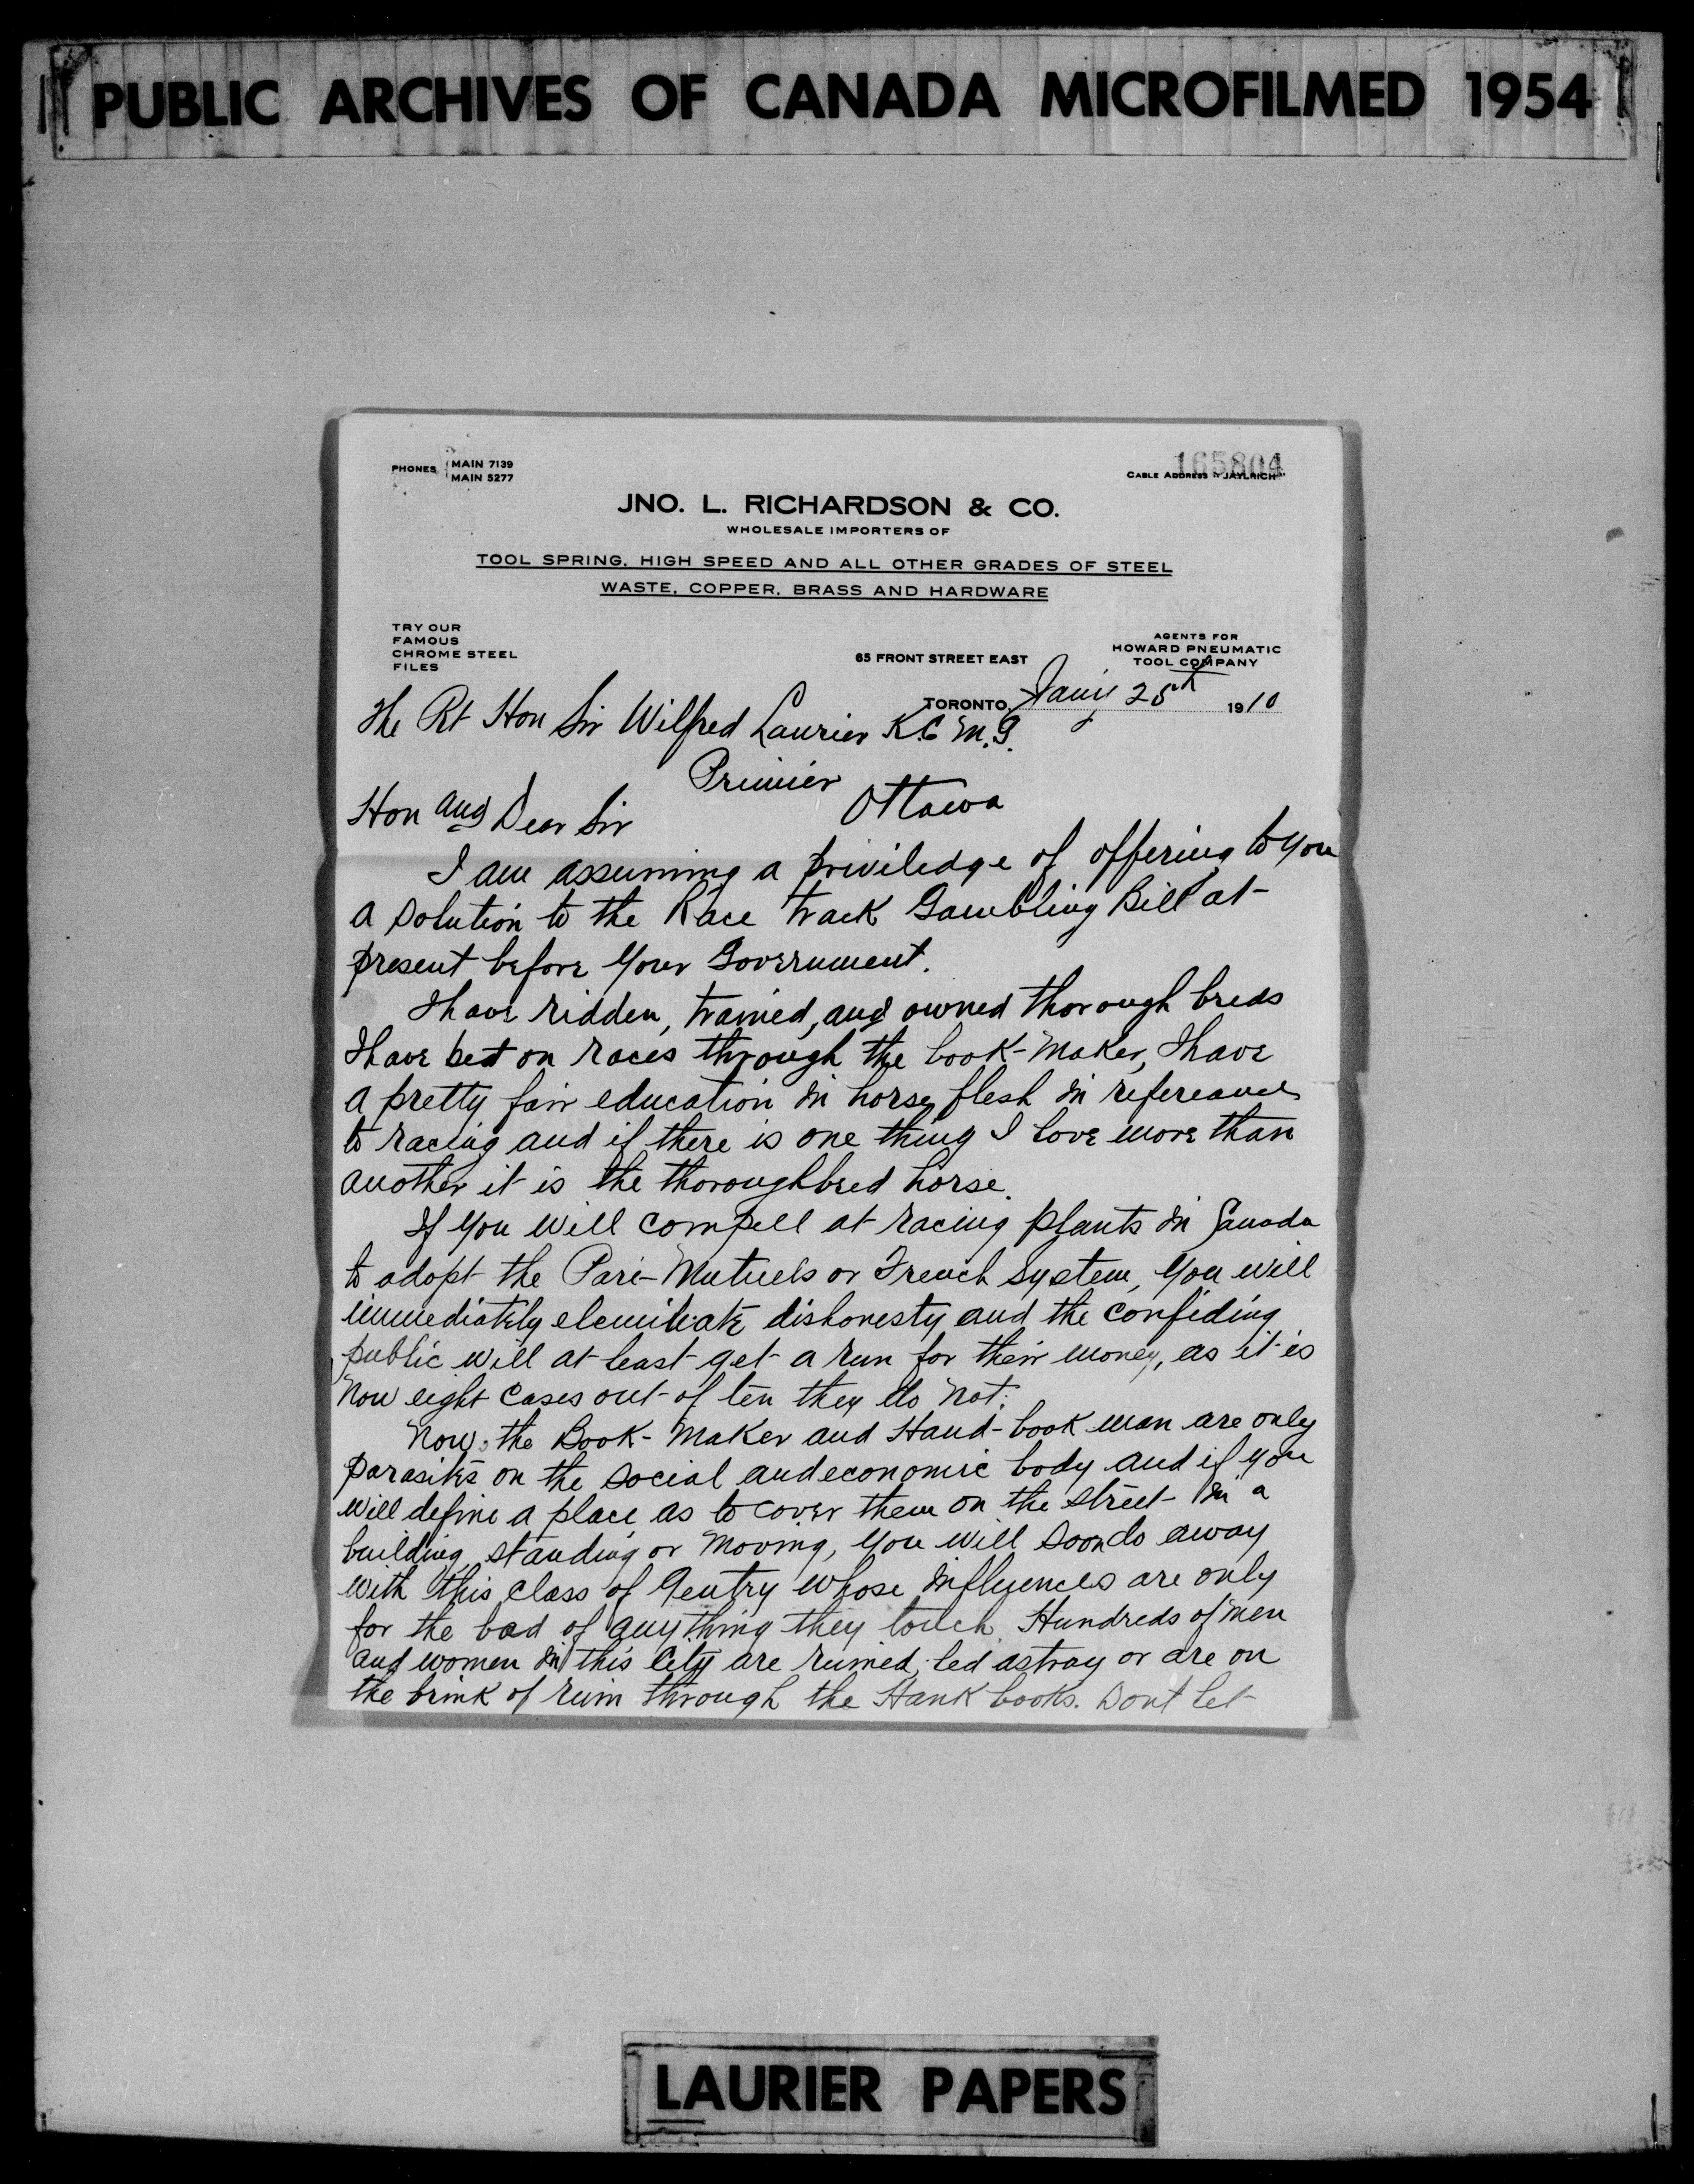 PUBLIC ARCHIVES OF CANADA MICROFILMED 1954
PHONES MAIN 7139
MAIN 5277
165804
CABLE ADDRESS "JAYLRICH"
JNO. L. RICHARDSON & CO.
WHOLESALE IMPORTERS OF
TOOL SPRING, HIGH SPEED AND ALL OTHER GRADES OF STEEL
WASTE, COPPER, BRASS AND HARDWARE
TRY OUR
FAMOUS
CHROME STEEL
FILES
AGENTS FOR
HOWARD PNEUMATIC
TOOL COMPANY
65 FRONT STREET EAST
TORONTO, Jany 25th 1910
The Rt Hon Sir Wilfred Laurier K.C.M.G.
Primier
Ottawa
Hon and Dear Sir
I am assuming a priviledge of offering to you
a solution to the Race Track Gambling Bill at
present before Your Government.
I have ridden, trained, and owned thorough breds
I have bet on races through the book-maker, I have
a pretty fair education in horse flesh in refereance
to racing and if there is one thing I love more than
another it is the thoroughbred horse.
If you will compell at racing plants in Canada
to adopt the Pari-Mutuels or French system, you will
immediately elemineate dishonesty and the confiding
public will at least get a run for their money, as it is
now eight cases out of ten they do not.
Now, the Book-Maker and Hand-book man are only
parasites on the social and economic body and if you
will define a place as to cover them on the street in a
building, standing or moving, you will soon do away
with this class of Gentry whose influences are only
for the bad of anything they touch. Hundreds of men
and women in this City are ruined, led astray or are on
the brink of ruin through the Hank books. Dont let
LAURIER PAPERS